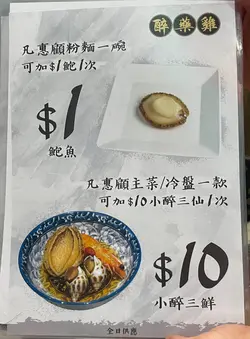 醉藥雞
凡惠顧粉麵一碗
可加$1鮑1次
$1
鮑魚
凡惠顧主菜/冷盤一款
可加$10小醉三仙1次
$10
小醉三鮮
全日供應